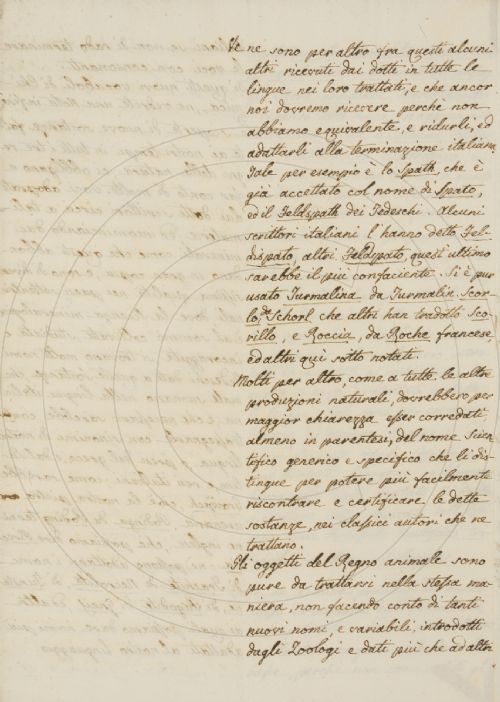 Ve ne sono per altro fra questi alcuni
altri ricevuti dai dotti in tutte le
lingue nei loro trattati, e che ancor
noi dovremo ricevere perchè non
abbiamo equivalente, e ridurli, ed
adattarli alla terminazione italiana
Tale per esempio è lo Spath, che è
già accettato col nome di Spato,
ed il Feldspath dei Tedeschi. Alcuni
scrittori italiani l'hanno detto Fel-
dispato, altri Feldspato, quest'ultimo
sarebbe il più confaciente. Si è pur
usato Turmalina da Turmalin. Scor-
lo, da Schorl che altri han tradotto Sco-
rillo, e Roccia, da Roche francese,
ed altri qui sotto notati.
Molti per altro, come a tutte le altre
produzioni naturali, dovrebbero per
maggior chiarezza esser corredati
almeno in parentesi, del nome Scien-
tefico generico e specifico che li dis-
tingue per potere più facilmente
riscontrare e certificare le dette
sostanze, nei classici autori che ne
trattano.
Gli oggetti del Regno animale sono
pure da trattarsi nella stessa ma-
niera, non facendo conto di tanti
nuovi nomi, e variabili, introdotti
dagli Zoologi e dati più che ad altri